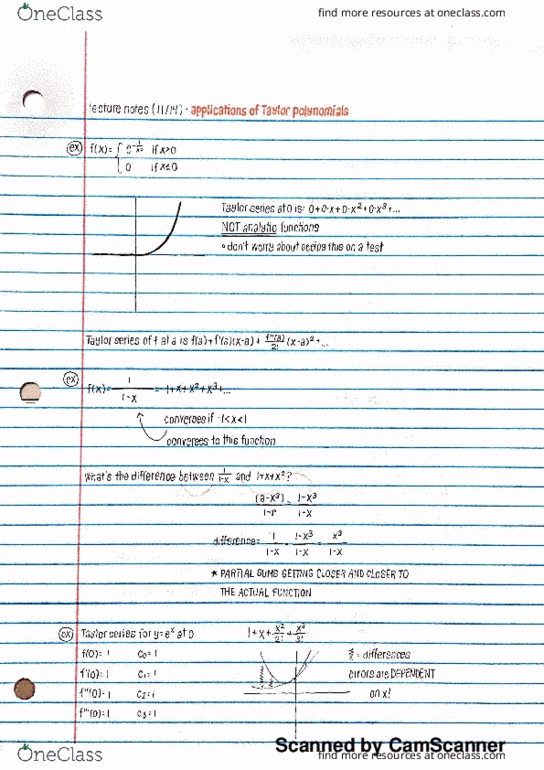 OneClass
find more resources at oneclass.com
lecture notes (11/14) - applications of Taylor polynomials
ex f(x)= { e^-1/x² if x>0
0 if x≤0
Taylor series at 0 is: 0+0·x+0·x²+0·x³+...
NOT analytic functions
• don't worry about seeing this on a test
Taylor series of f at a is f(a)+f'(a)(x-a)+ f''(a)/2! (x-a)²+...
ex f(x)= 1/1-x = 1+x+x²+x³+...
converges if -1<x<1
converges to this function
What's the difference between 1/1-x and 1+x+x²?
(a-x³)/1-r = 1-x³/1-x
difference= 1/1-x - 1-x³/1-x = x³/1-x
* PARTIAL SUMS GETTING CLOSER AND CLOSER TO
THE ACTUAL FUNCTION
ex Taylor series for y=eˣ at 0 1+x+x²/2!+x³/3!
f(0)=1 c₀=1 = differences
f'(0)=1 c₁=1 errors are DEPENDENT
f''(0)=1 c₂=1 on x!
f'''(0)=1 c₃=1
Scanned by CamScanner
OneClass
find more resources at oneclass.com